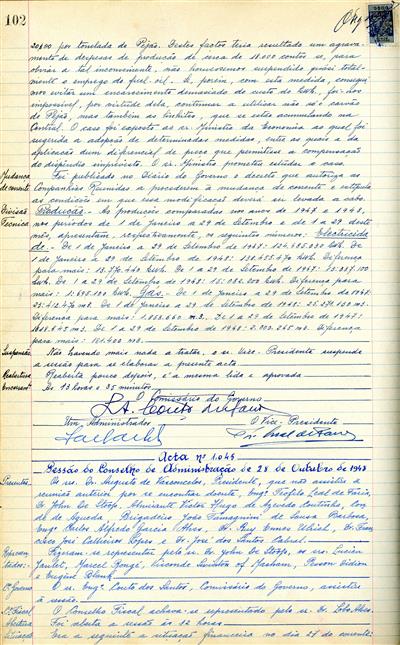 102
20$00 por tonelada de Pejão. Destes factos teria resultado um agrava-
mento de despesas de produção de cerca de 18.000 contos se, para
obviar a tal inconveniente, não houvessemos suspendido quási total-
mente o emprego do fuel-oil. Se, porém, com esta medida, consegui-
mos evitar um encarecimento demasiado do custo do kwh. foi-nos
impossível, por virtude dela, continuar a utilizar não só o carvão
de Pejão, mas tambem as linhites, que se estão acumulando na
Central. O caso foi exposto ao sr. Ministro da Economia ao qual foi
sugerida a adopção de determinadas medidas, entre as quais a da
aplicação dum diferencial de preço que permitisse a compensação
do dispêndio imprevisto. O sr. Ministro prometeu estudar o caso.
Mudança Foi publicado no Diário do Governo o decreto que autoriza as
de corrente Companhias Reunidas a procederem à mudança de corrente e estipula
as condições em que essa modificação deverá ser levada a cabo.
Divisão Produção - As produções comparadas nos anos de 1947 e 1948,
Técnica nos períodos de 1 de Janeiro a 29 de Setembro e de 1 a 29 deste
mês, apresentam respectivamente, os seguintes números: Electricida-
de - De 1 de Janeiro a 29 de Setembro de 1947: kwh. De
1 de Janeiro a 29 de Setembro de 1948: kwh. Diferença
para mais: kwh. De 1 a 29 de Setembro de 1947:
kwh. De 1 a 29 de Setembro de 1948: kwh. Diferença para
mais: kwh. Gás - De 1 de Janeiro a 29 de Setembro de 1947:
m3. De 1 de Janeiro a 29 de Setembro de 1948: m3.
Diferença para mais: m3. De 1 a 29 de Setembro de 1947:
m3. De 1 a 29 de Setembro de 1948: m3. Diferença
para mais: m3.
Suspensão Não havendo mais nada a tratar, o sr. Vice-Presidente suspende
a sessão para se elaborar a presente acta.
Reabertura Reaberta pouco depois, é a mesma lida e aprovada
Encerramt. Às 13 horas e 35 minutos.
O Comissário do Governo
Um Administrador O Vice-Presidente
Acta nº 1.045
Sessão do Conselho de Administração de 28 de Outubro de 1948
Presentes Os srs. Dr. Augusto de Vasconcelos, Presidente, que não assistiu à
reunião anterior por se encontrar doente, Engº Teofilo Leal de Faria,
Dr. John De Stoop, Almirante Victor Hugo de Azevedo Coutinho, Con-
de de Azevedo, Brigadeiro João Tamagnini de Sousa Barbosa,
Engº Carlos Alfredo Garcia Alves, Dr. Ruy Ennes Ulrich, Dr. Fran-
cisco José Callheiros Lopes e Dr. José dos Santos Cabral.
Represen- Fizeram-se representar pelo sr. Dr. John De Stoop, os srs. Lucien
tados: Jaulet, Marcel Gongé, Visconde
e Eugène Blank.
Cº Governo O sr. engº Couto dos Santos, Comissário do Governo, assistiu
à sessão.
Cº Fiscal O Conselho Fiscal achava-se representado pelo sr. Dr. Lobo Alves.
Abertura Foi aberta a sessão às 12 horas.
Situação Era a seguinte a situação financeira no dia 27 do corrente: